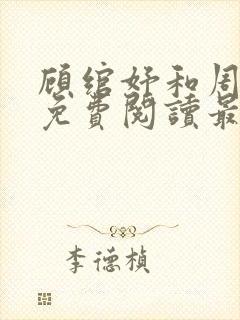 顾绾妤和周
免費閱讀最
李德楨